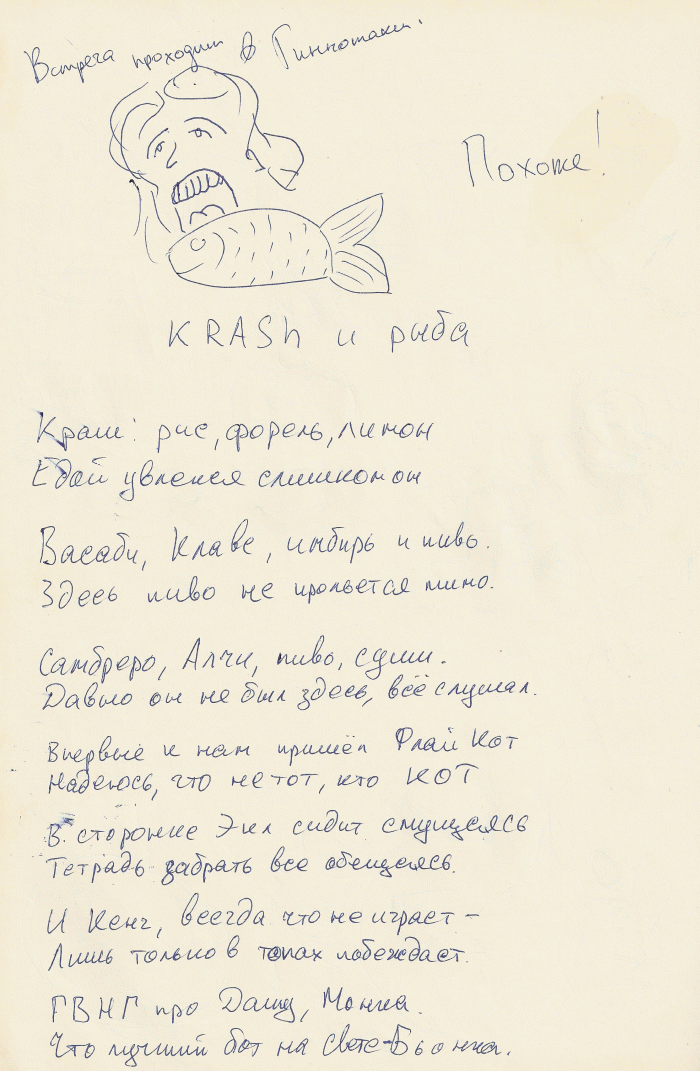 Встреча проходит в Гиннотаки.
Похоже!
KRASh и рыба
Краш: рис, форель, лимон
Едой увлекся слишком он
Васаби, Клаве, имбирь и пиво.
Здесь пиво не прольется мимо.
Самбреро, Алчи, пиво, суши.
Давно он не был здесь, всё слушал.
Впервые к нам пришёл Флай Кот
Надеюсь, что не тот, кто КОТ
В сторонке Эил сидит смущаясь
Тетрадь забрать все обещаясь.
И Кенг, всегда что не играет –
Лишь только в топах побеждает.
ГВНГ про Дашу, Монка.
Что лучший бот на свете - Бьонка.